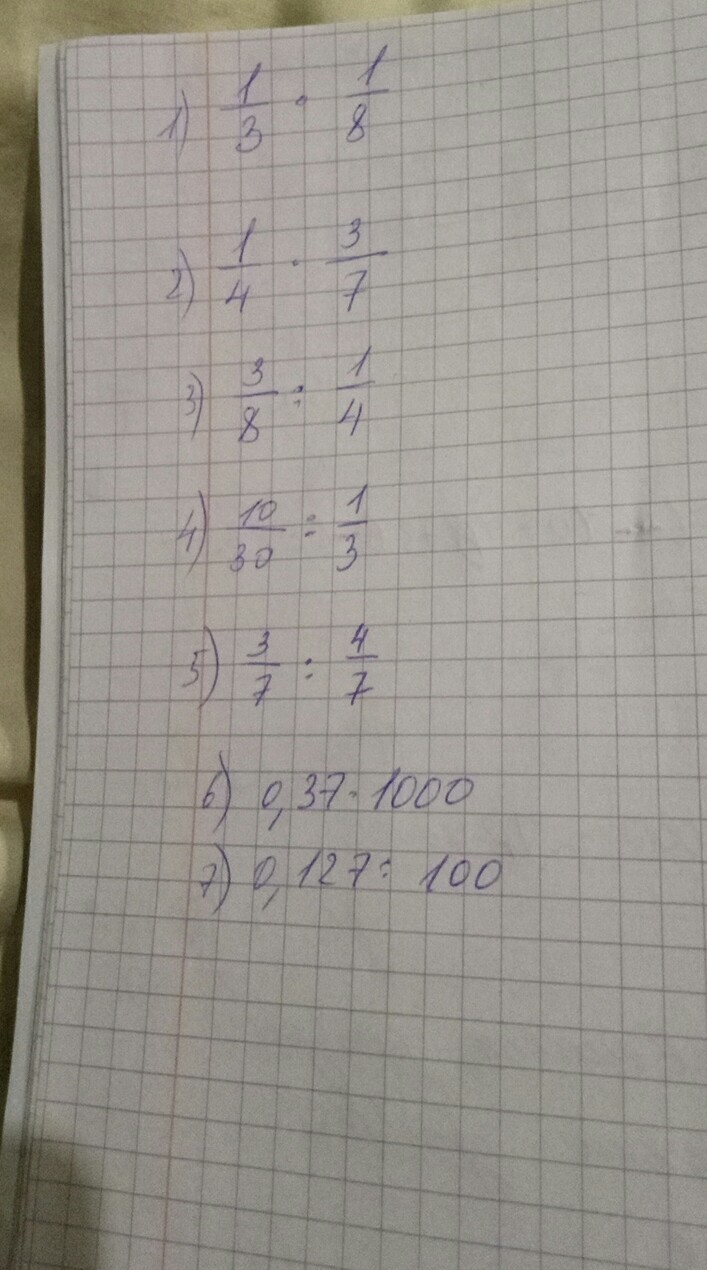 1) 1/3 · 1/8
2) 1/4 · 3/7
3) 3/8 : 1/4
4) 10/30 : 1/3
5) 3/7 : 4/7
6) 0,37 · 1000
7) 0,127 : 100